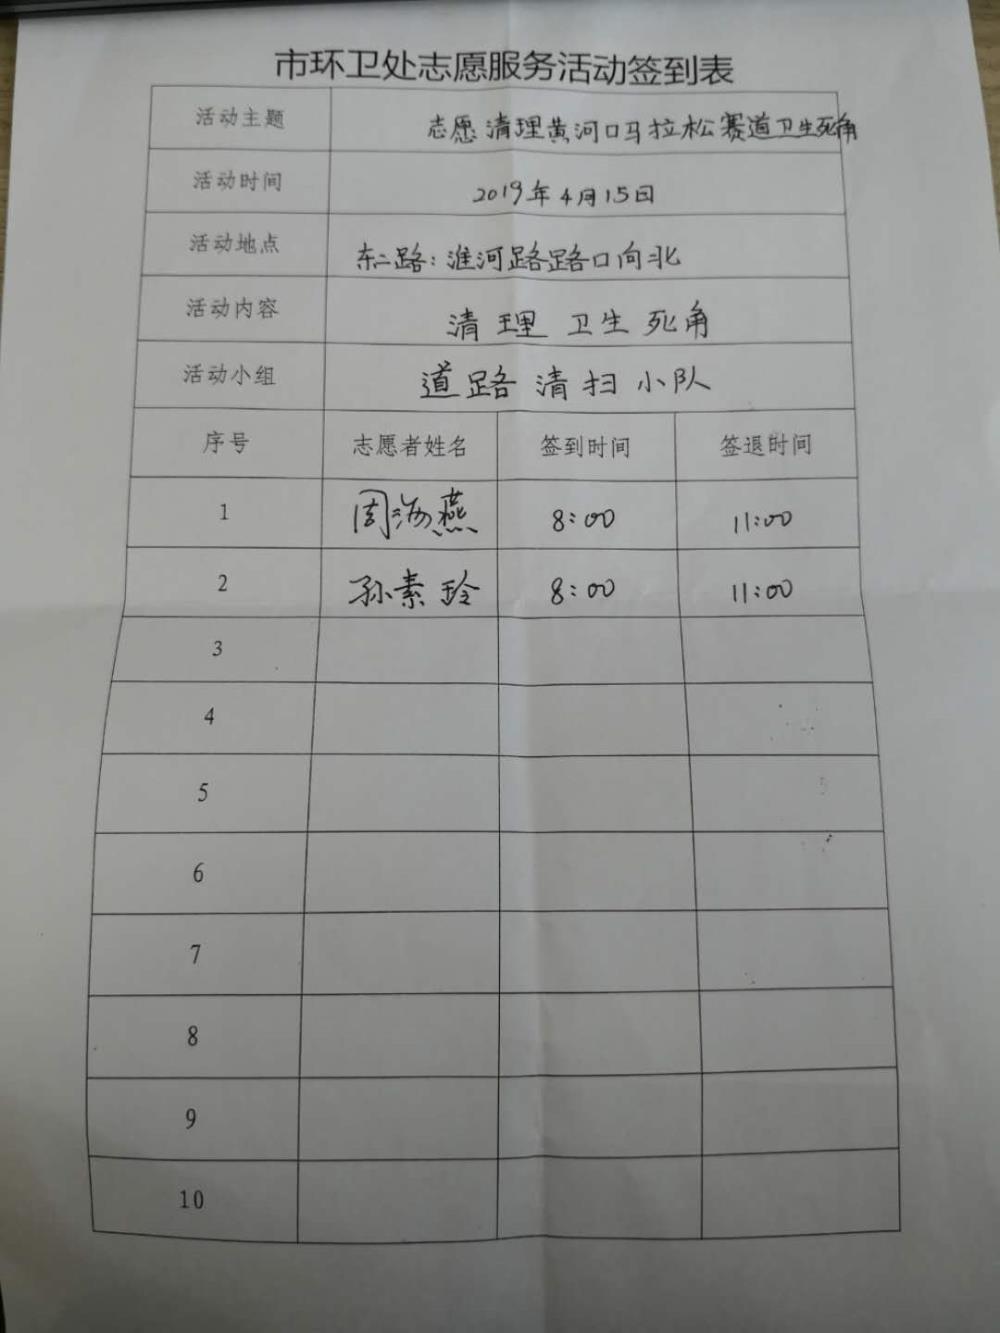 市环卫处志愿服务活动签到表
活动主题 志愿清理黄河口马拉松赛道卫生死角
活动时间 2019年4月15日
活动地点 东二路:淮河路路口向北
活动内容 清理卫生死角
活动小组 道路清扫小队
序号 志愿者姓名 签到时间 签退时间
1 周海燕 8:00 11:00
2 孙素玲 8:00 11:00
3
4
5
6
7
8
9
10